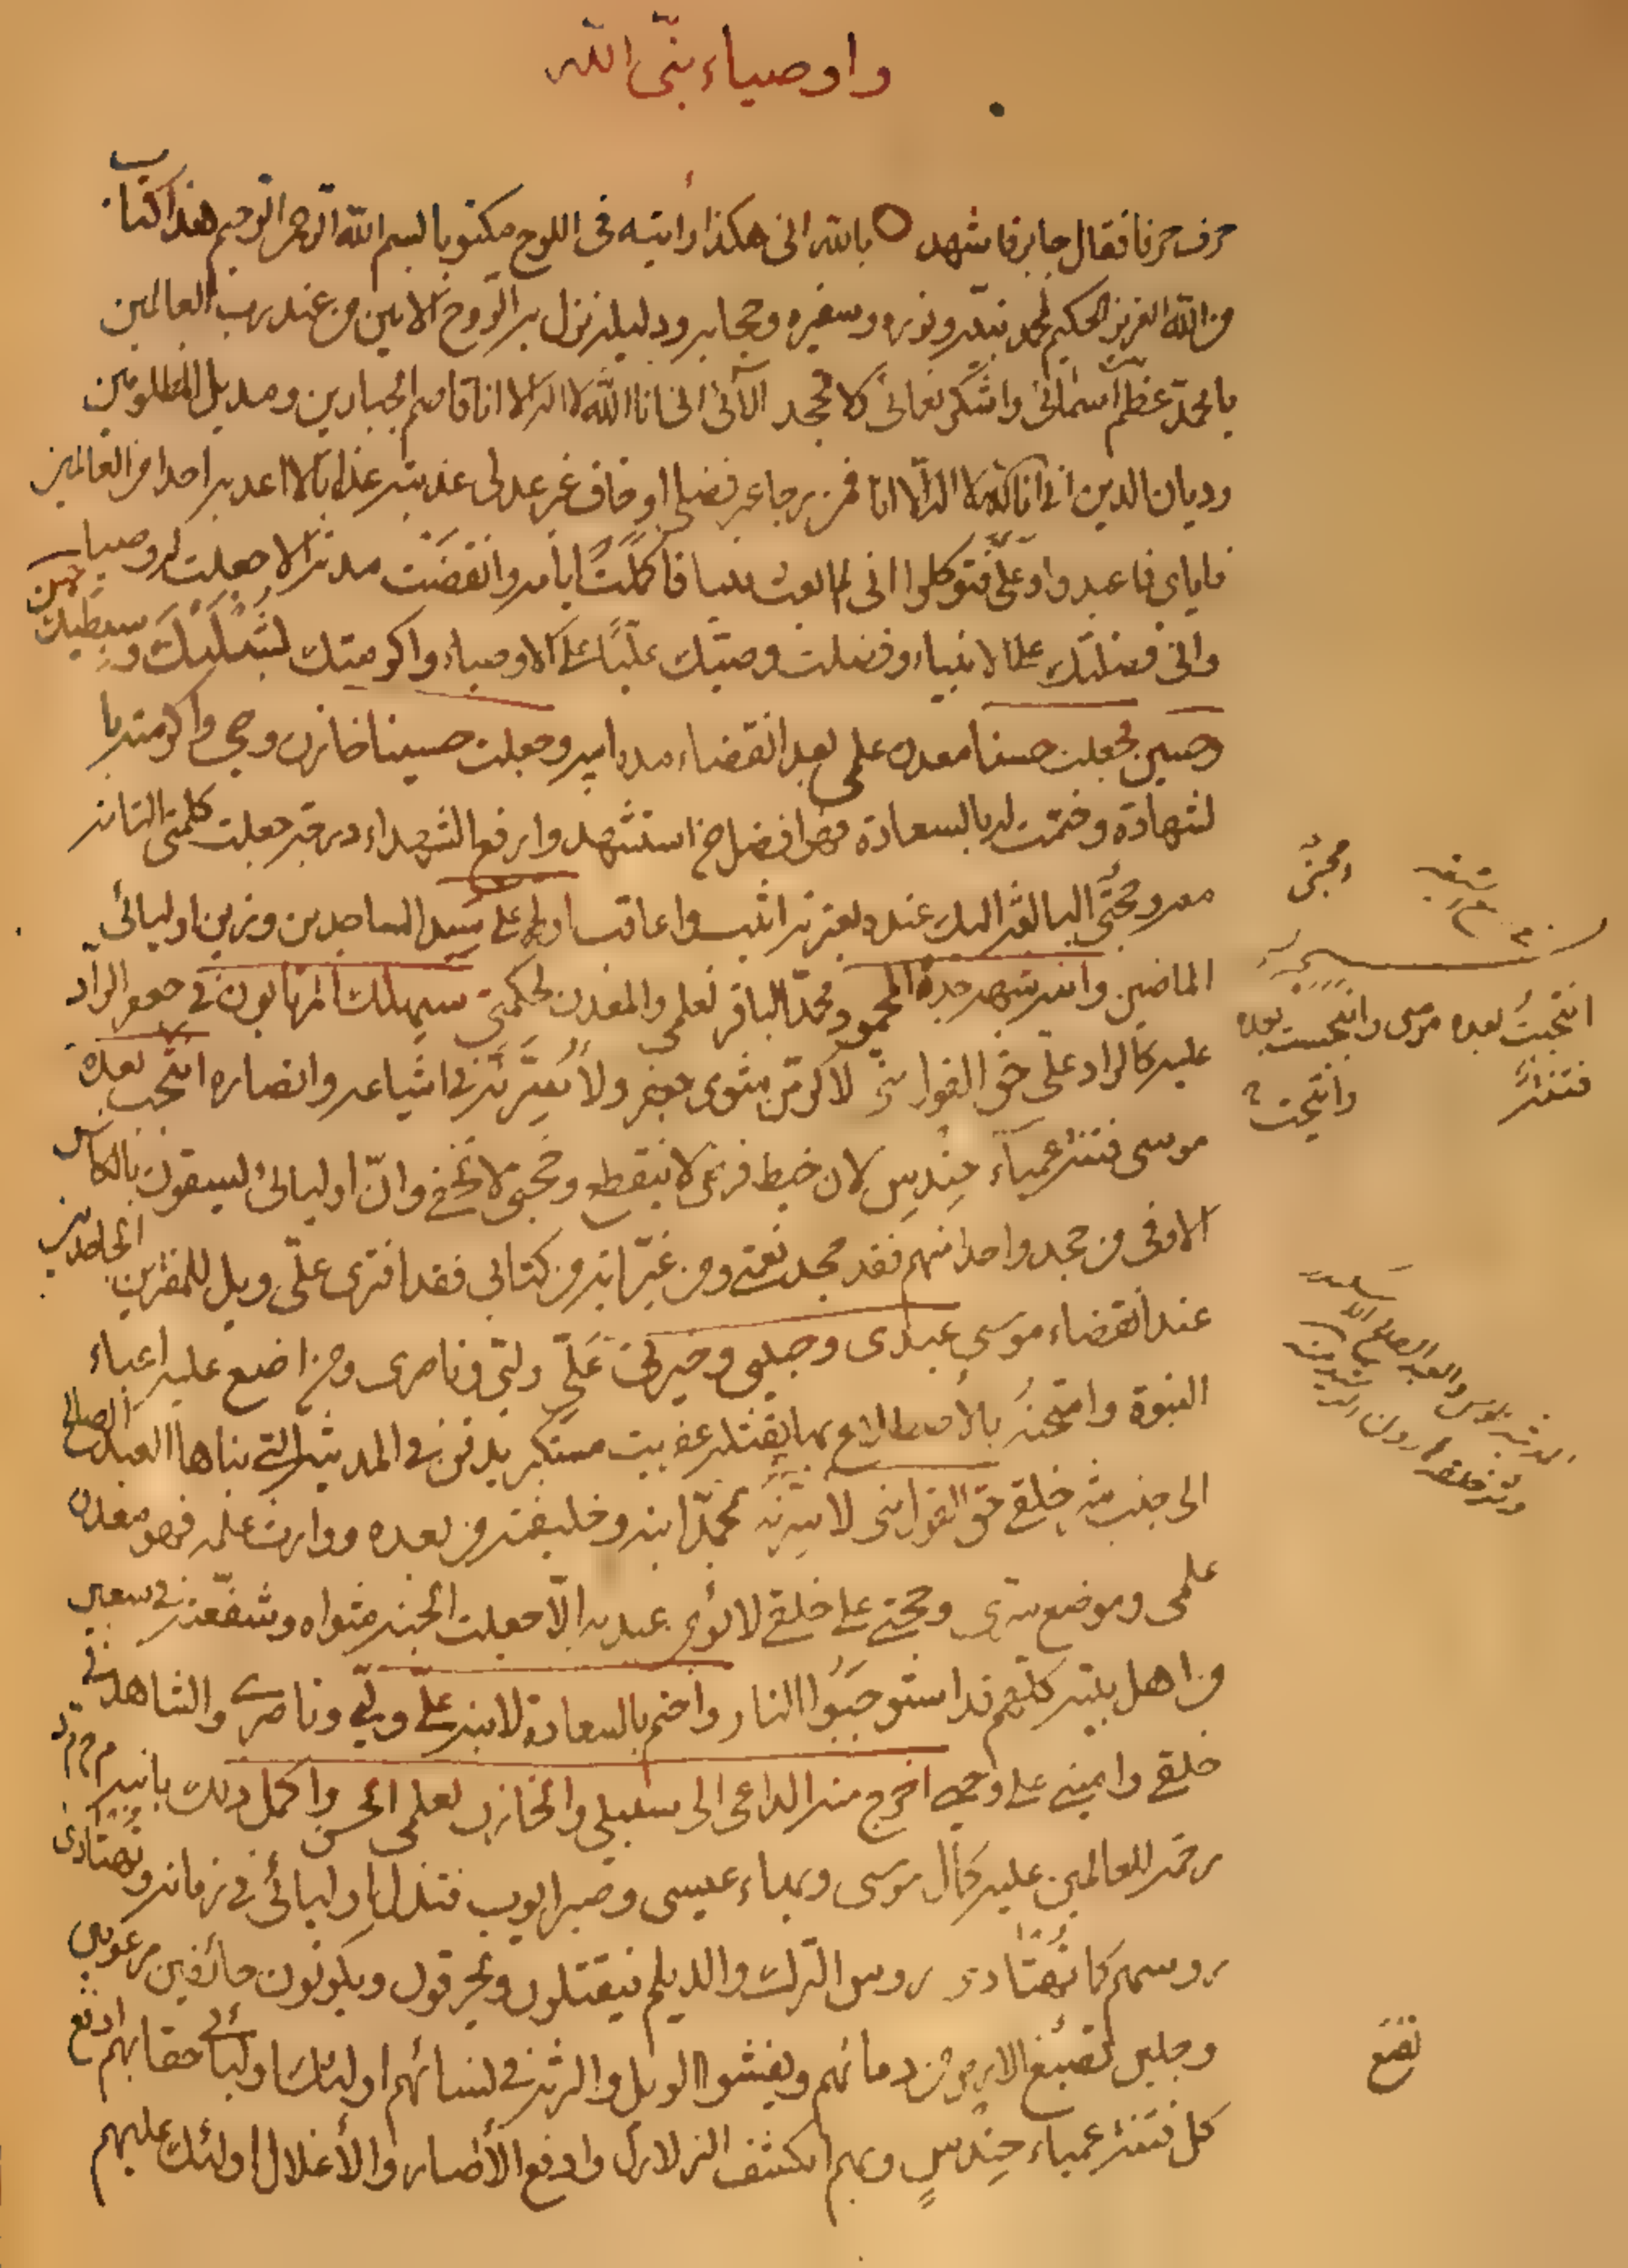 واوصياء نبى الله
حرف حرفا فقال جابر فاشهد بالله انى هكذا رأيته فى اللوح مكتوبا بسم الله الرحمن الرحيم هذا كتاب
من الله العزيز الحكيم لمحمد نبيه ونوره وسفيره وحجابه ودليله نزل به الروح الامين من عند رب العالمين
يا محمد عظم اسمائى واشكر نعمائى ولا تجحد آلائى انى انا الله لا اله الا انا قاصم الجبارين ومديل المظلومين
وديان الدين انى انا الله لا اله الا انا فمن رجا غير فضلى او خاف غير عدلى عذبته عذابا لا اعذبه احدا من العالمين
فاياى فاعبد وادعلىّ فتوكلوا انى لم ابعث نبيا فاكملت ايامه وانقضت مدته الا جعلت له وصيا
وانى فضلتك على الانبياء وفضلت وصيك عليا على الاوصياء واكرمتك بشبليك وسبطيك حسن
وحسين فجعلت حسنا معدن علمى بعد انقضاء مدة ابيه وجعلت حسينا خازن وحيى واكرمته با
لشهادة وختمت له بالسعادة فهو افضل من استشهد وارفع الشهداء درجة جعلت كلمتى التامة
معه وحجتى البالغة اليك عنده بعترته اثيب واعاقب اولهم على سيد الساجدين وزين اوليائى
الماضين وابنه شبه جده المحمود محمد الباقر لعلمى والمعدن لحكمتى سيهلك المرتابون فى جعفر الراد
عليه كالراد علىّ حق القول منى لاكرمن مثوى جعفر ولا فى اشياعه وانصاره انتجبت بعده
موسى فتنة عمياء حندس لان خيط فرضى لا ينقطع وحجتى لا تخفى وانّ اوليائى يسقون بالكاس
الاوفى من جحد واحدا منهم فقد جحد نعمتى ومن غيّر اية من كتابى فقد افترى علىّ ويل للمفترين الجاحدين
عند انقضاء موسى عبدى وحبيبى وخيرتى علىّ وليّى وناصرى ومن اضع عليه اعباء
النبوة وامتحنه بالاضطلاع بها يقتله عفريت مستكبر يدفن فى المدينة التى بناها العبد الصالح
الى جنب شر خلقى حق القول منى لاسرّنّه بمحمد ابنه وخليفته من بعده ووارث علمه فهو معدن
علمى وموضع سرى وحجتى على خلقى لا يؤمن عبد به الّا جعلت الجنة مثواه وشفّعته فى سبعين
من اهل بيته كلهم قد استوجبوا النار واختم بالسعادة لابنه علىّ وليّى وناصرى والشاهد فى
خلقى وامينى على وحيى اخرج منه الداعى الى سبيلى والخازن لعلمى الحسن واكمل ذلك بابنه م ح م د
رحمة للعالمين عليه كمال موسى وبهاء عيسى وصبر ايوب فتذل اوليائى فى زمانه وتتهادى
روسهم كما تتهادى روس الترك والديلم فيقتلون ويحرقون ويكونون خائفين مرعوبين
وجلين تصبغ الارض من دمائهم ويفشوا الويل والرنة فى نسائهم اولئك اوليائى حقا بهم ادفع
كل فتنة عمياء حندس وبهم اكشف الزلازل وادفع الآصار والأغلال اولئك عليهم
انتجبتُ بعده موسى وانتجبت بعده
فتنة
وانتجبت